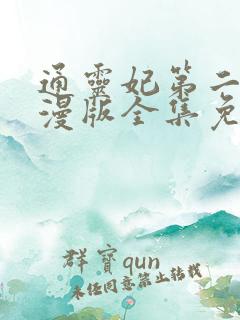 通靈妃第二
漫版全集免
群寶qun
未任同意禁止转载